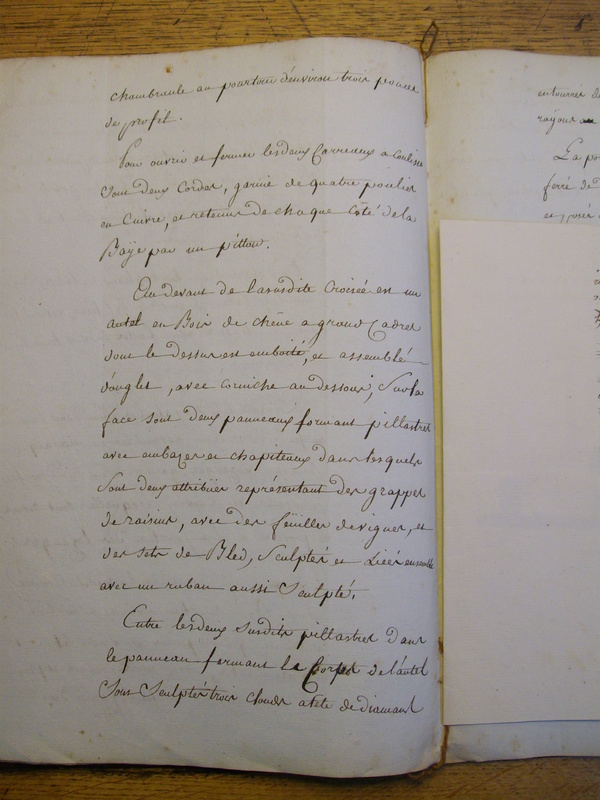 chambranle au pourtour d'environ trois pouces
de profil.
Pour ouvrir et fermer les deux Carreaux a coulisse
sont deux Cordes, garnie de quatre poulies
en Cuivre, et retenus de chaque Côté de la
Baÿe par un pitton.
Au devant de la susdite Croisée est un
autel en Bois de chêne a grand Cadres
dont le dessus est emboité, et assemblé
d'onglet, avec corniche au dessous, Sur la
face sont deux panneaux formant pillastres
avec embazes et chapiteaux dans lesquels
sont deux attribües représentant des grappes
de raisins, avec des feüilles de vignes, et
des sets de Bled, Sculptés et Liées ensemble
avec un ruban aussi Sculpté.
Entre les deux susdits pillastres dans
le panneau formant le Corps de l'autel
sous Sculptés trois clouds a tête de diamant
entourres de
rayons au
La po
ferré de
et posé